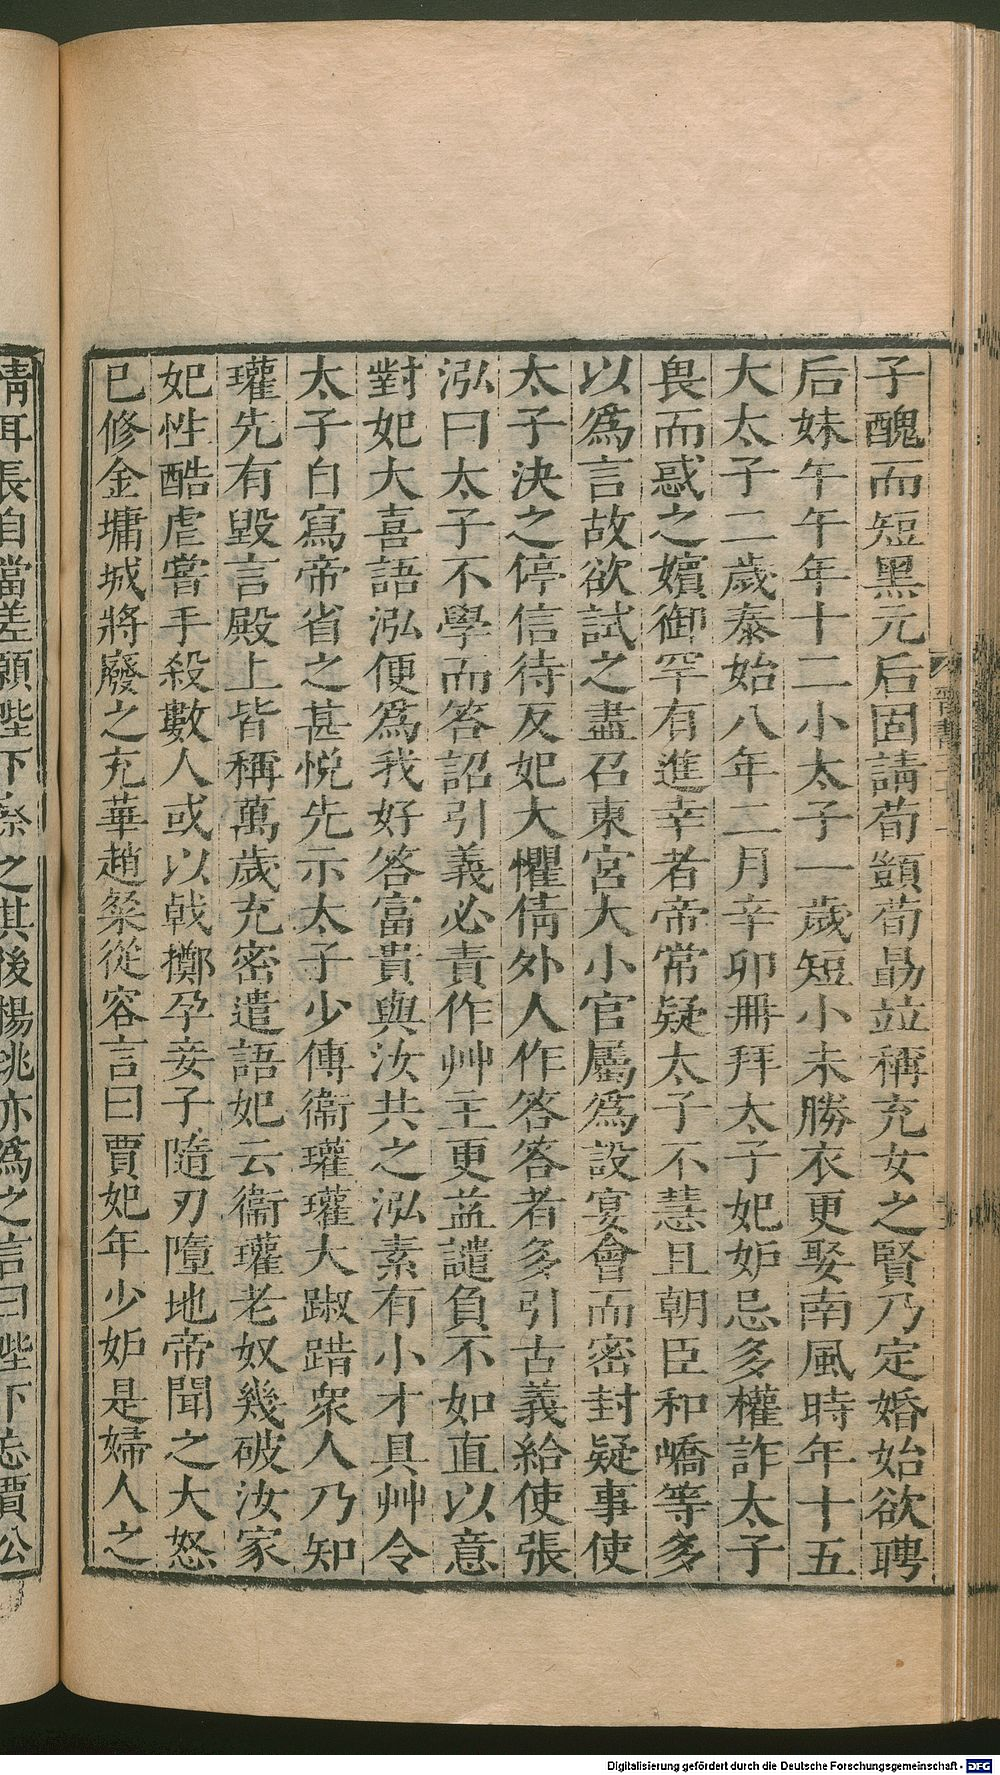 子醜而短黑元后固請荀顗荀勗竝稱充女之賢乃定婚始欲聘
后妹午午年十二小太子一歲短小未勝衣更娶南風時年十五
大太子二歲泰始八年二月辛卯冊拜太子妃妒忌多權詐太子
畏而惑之嬪御罕有進幸者帝常疑太子不慧且朝臣和嶠等多
以爲言故欲試之盡召東宮大小官屬爲設宴會而密封疑事使
太子決之停信待反妃大懼倩外人作答答者多引古義給使張
泓曰太子不學而答詔引義必責作艸主更益譴負不如直以意
對妃大喜語泓便爲我好答富貴與汝共之泓素有小才具艸令
太子自寫帝省之甚悅先示太子少傳衞瓘瓘大踧踖衆人乃知
瓘先有毀言殿上皆稱萬歲充密遣語妃云衞瓘老奴幾破汝家
妃性酷虐嘗手殺數人或以戟擲孕妾子隨刃墮地帝聞之大怒
已修金墉城將廢之充華趙粲從容言曰賈妃年少妒是婦人之
情耳長自當差願陛下察之其後楊珧亦爲之言曰陛下忘賈公
晉書
Digitalisierung gefördert durch die Deutsche Forschungsgemeinschaft - DFG